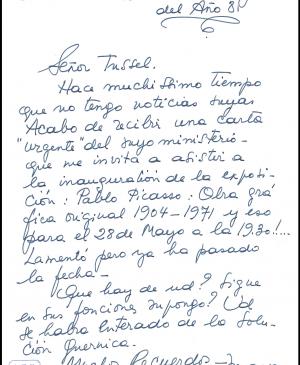 del Año 81
Señor Tussel.
Hace muchisimo tiempo
que no tengo noticias suyas
Acabo de recibir una carta
"urgente" del suyo ministerio-
que me invita a asistir a
la inauguración de la exposi-
ción: Pablo Picasso: Obra grá-
fica original 1904-1971 y eso
para el 28 de Mayo a la 19.30!...
Lamentó pero ya ha pasado
la fecha-
Que hay de ud? Sigue
en sus fonciones supongo? Ud
se habia enterado de la Solu-
ción Guernica.
Recuerdos-